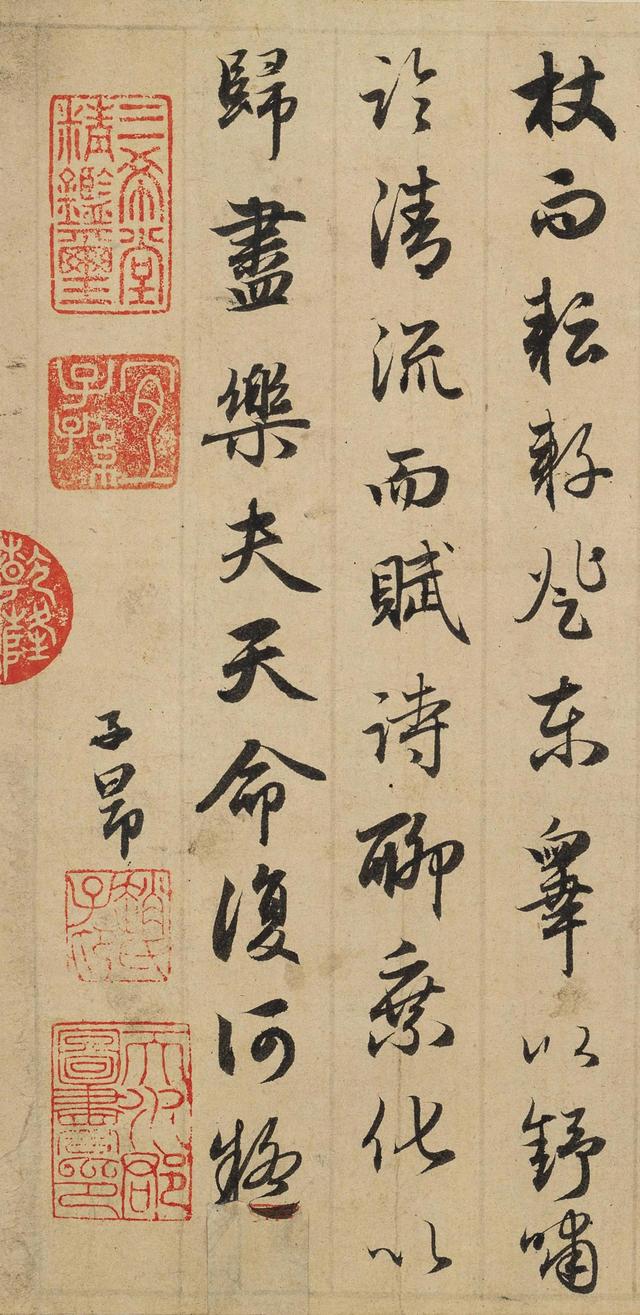 杖而耘耔登東皋以舒嘯
臨清流而賦詩聊乘化以
歸盡樂夫天命復何疑
三希堂
精鑑璽
宜
子孫
子昂
趙氏
子昂
天水郡
圖書印
乾隆